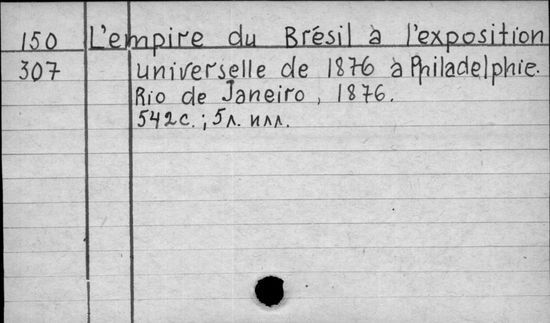 150 L'empire du Brésil à l'exposition
307 universelle de 1876 à Philadelphie.
Rio de Janeiro, 1876.
542с.; 5л. илл.